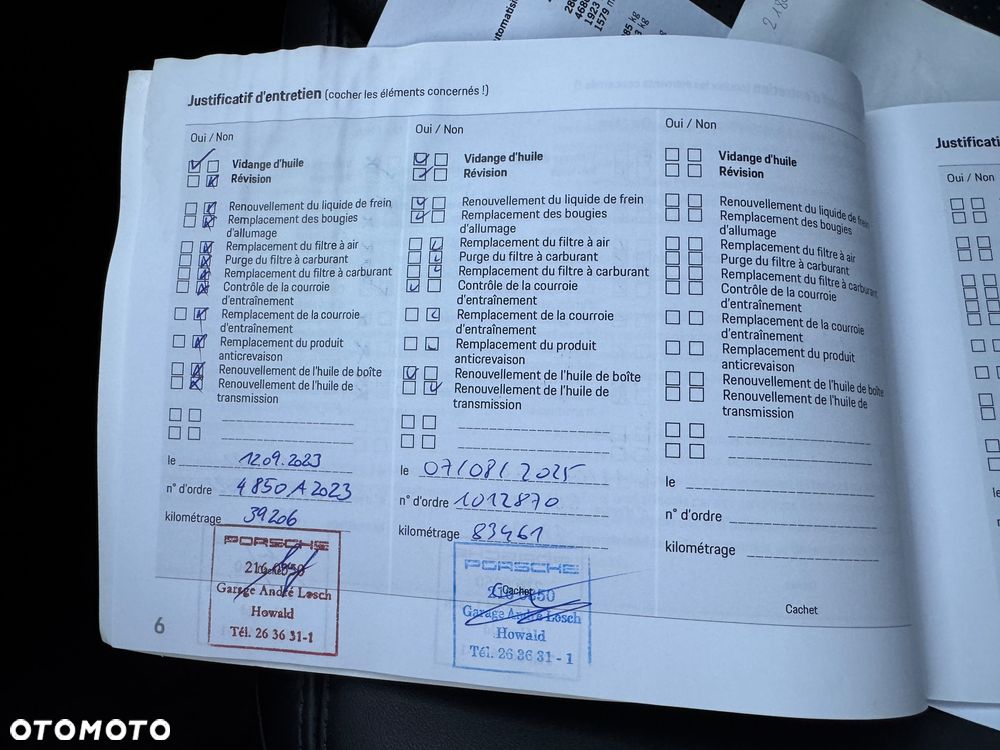 automatisi
1923
1579
kg
kg
218
Justificatif d'entretien (cocher les éléments concernés !)
Oui / Non
Vidange d'huile
Révision
Renouvellement du liquide de frein
Remplacement des bougies
d'allumage
Remplacement du filtre à air
Purge du filtre à carburant
Remplacement du filtre à carburant
Contrôle de la courroie
d'entraînement
Remplacement de la courroie
d'entraînement
Remplacement du produit
anticrevaison
Renouvellement de l'huile de boîte
Renouvellement de l'huile de
transmission
le 12.09.2023
n° d'ordre 4850A2023
kilométrage 39206
PORSCHE
216 0850
Cachet
Garage André Losch
Howald
Tél. 26 36 31-1
6
Oui / Non
Vidange d'huile
Révision
Renouvellement du liquide de frein
Remplacement des bougies
d'allumage
Remplacement du filtre à air
Purge du filtre à carburant
Remplacement du filtre à carburant
Contrôle de la courroie
d'entraînement
Remplacement de la courroie
d'entraînement
Remplacement du produit
anticrevaison
Renouvellement de l'huile de boîte
Renouvellement de l'huile de
transmission
le 07/08/2025
n° d'ordre 1012870
kilométrage 83461
PORSCHE
216 0850
Cachet
Garage André Losch
Howald
Tél. 26 36 31-1
Oui / Non
Vidange d'huile
Révision
Renouvellement du liquide de frein
Remplacement des bougies
d'allumage
Remplacement du filtre à air
Purge du filtre à carburant
Remplacement du filtre à carburant
Contrôle de la courroie
d'entraînement
Remplacement de la courroie
d'entraînement
Remplacement du produit
anticrevaison
Renouvellement de l'huile de boîte
Renouvellement de l'huile de
transmission
le
n° d'ordre
kilométrage
Cachet
Justificati
Oui / Non
OTOMOTO